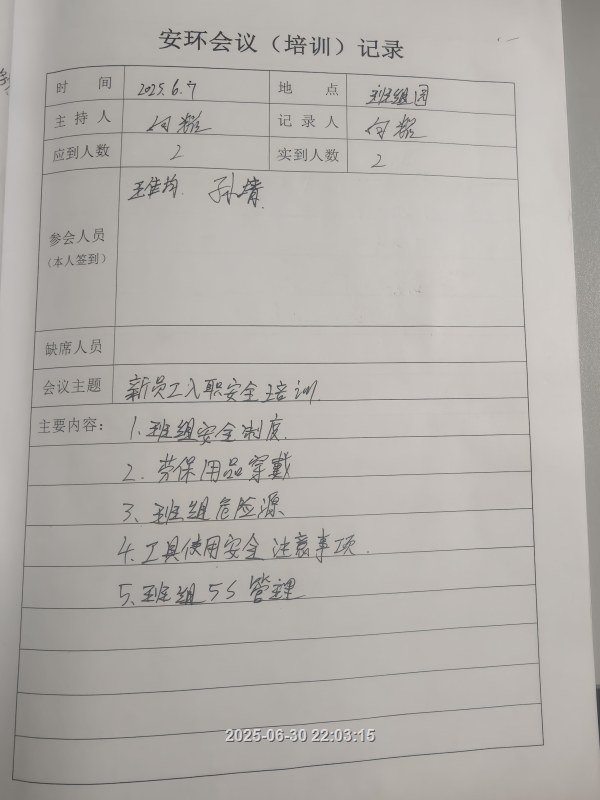 安环会议（培训）记录
时间 2025.6.7 地点 班组园
主持人 何耀 记录人 何耀
应到人数 2 实到人数 2
参会人员 王佳均 孙靖
（本人签到）
缺席人员
会议主题 新员工入职安全培训.
主要内容： 1. 班组安全制度.
2. 劳保用品穿戴
3、班组危险源
4. 工具使用安全注意事项.
5、班组5S管理
2025-06-30 22:03:15